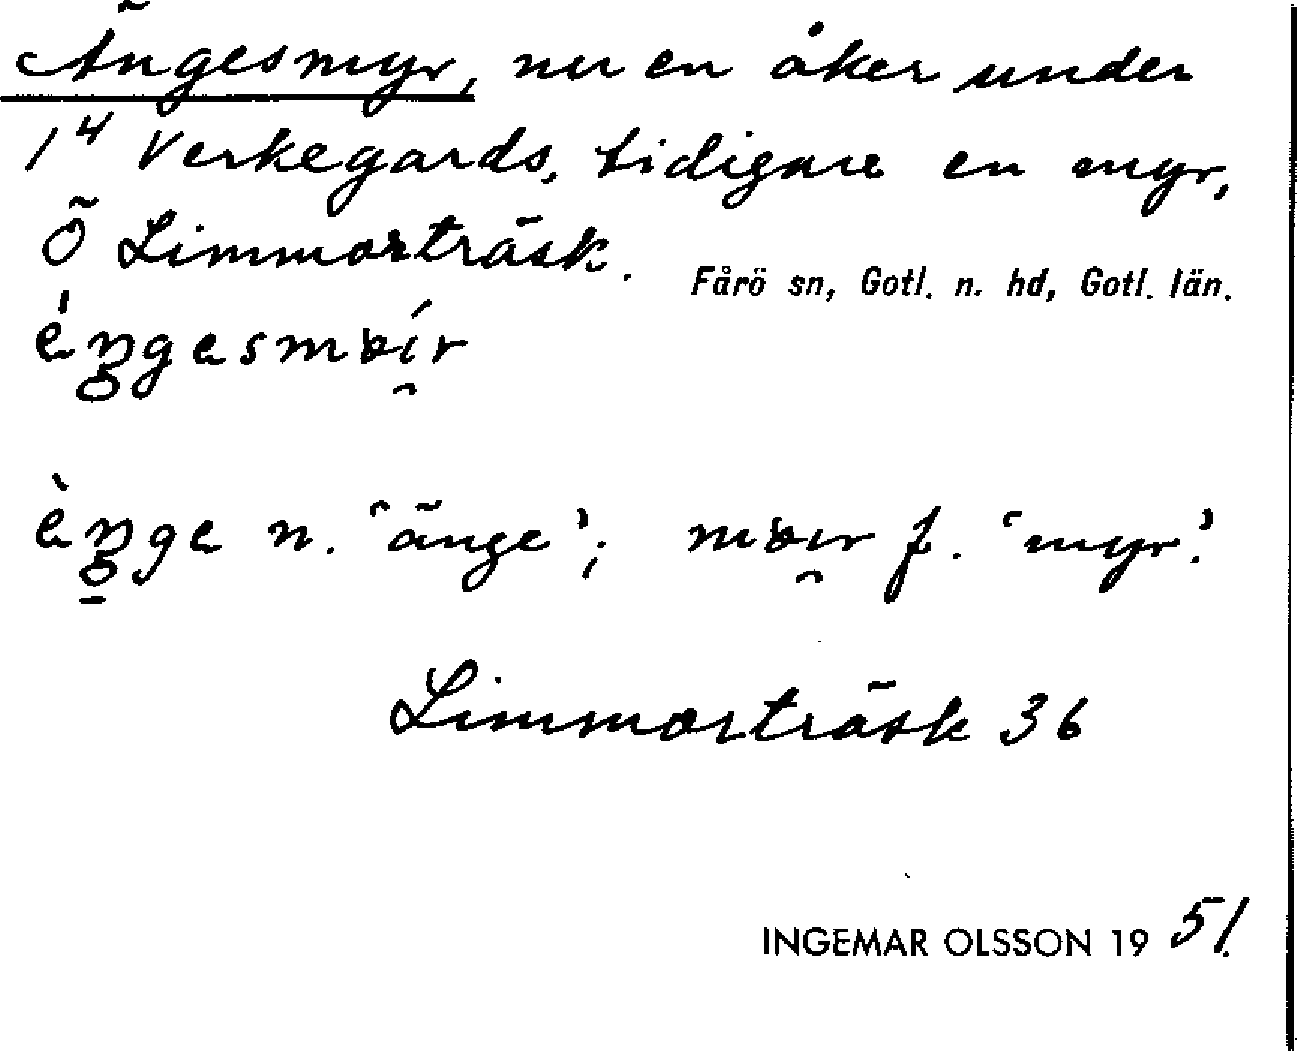 Ängesmyr, nu en åker under
1⁴ Verkegards, tidigare en myr,
Ö Limmorträsk.
Fårö sn, Gotl. n. hd, Gotl. län.
éŋgesmɒír
èŋge n. 'änge'; mɒɪr f. 'myr'.
Limmorträsk 36
INGEMAR OLSSON 1951.